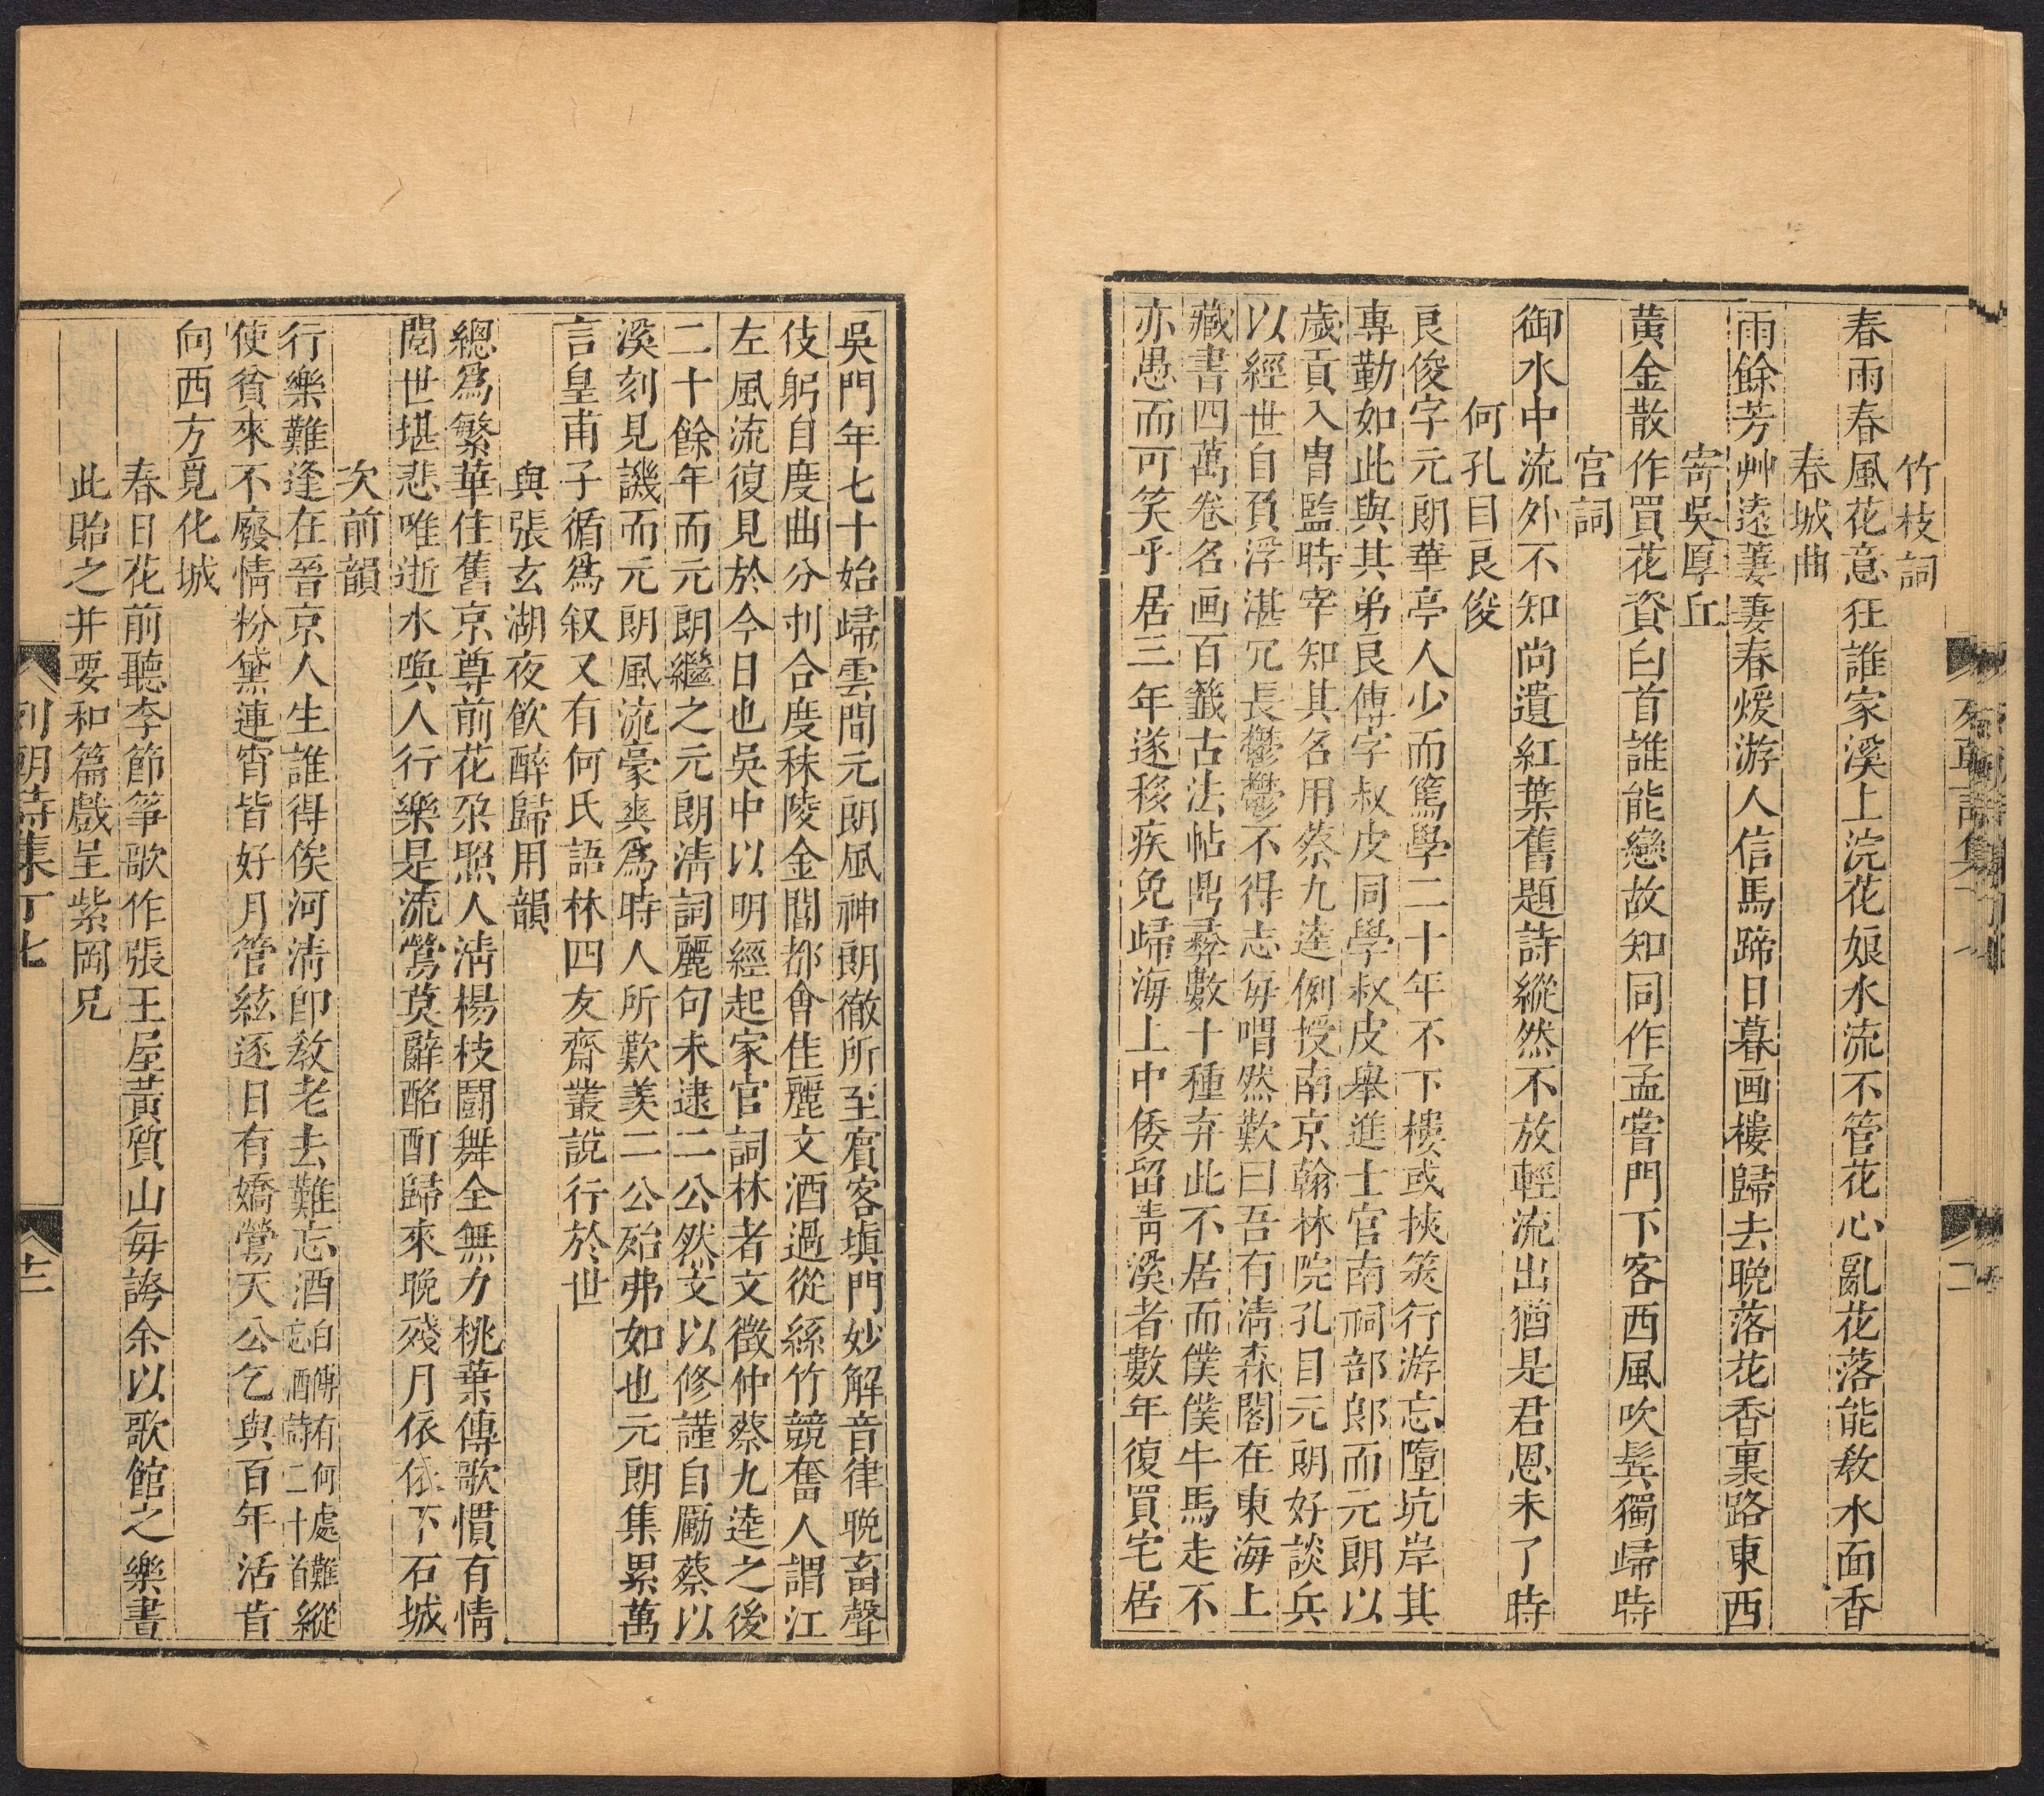 竹枝詞
春雨春風花意狂誰家溪上浣花娘水流不管花心亂花落能敎水面香
春城曲
雨餘芳艸遠萋萋春煖游人信馬蹄日暮画樓歸去晚落花香裏路東西
寄吳厚丘
黃金散作買花資白首誰能戀故知同作孟嘗門下客西風吹鬂獨歸時
宮詞
御水中流外不知尚遺紅葉舊題詩縱然不放輕流出猶是君恩未了時
何孔目良俊
良俊字元朗華亭人少而篤學二十年不下樓或挾筴行游忘墮坑岸其
專勤如此與其弟良傅字叔皮同學叔皮舉進士官南祠部郎而元朗以
歲貢入胄監時宰知其名用蔡九逵例授南京翰林院孔目元朗好談兵
以經世自負浮湛冗長鬱鬱不得志每喟然歎曰吾有淸森閣在東海上
藏書四萬卷名画百籤古法帖鼎彝數十種弃此不居而僕僕牛馬走不
亦愚而可笑乎居三年遂移疾免歸海上中倭留靑溪者數年復買宅居
吳門年七十始歸雲間元朗風神朗徹所至賓客塡門妙解音律晚畜聲
伎躬自度曲分刌合度秣陵金閶都會佳麗文酒過從絲竹競奮人謂江
左風流復見於今日也吳中以明經起家官詞林者文徵仲蔡九逵之後
二十餘年而元朗繼之元朗淸詞麗句未逮二公然文以修謹自勵蔡以
溪刻見譏而元朗風流豪爽爲時人所歎羨二公殆弗如也元朗集累萬
言皇甫子循爲叙又有何氏語林四友齋叢說行於世
與張玄湖夜飮醉歸用韻
總爲繁華住舊京尊前花朶照人淸楊枝鬬舞全無力桃葉傳歌慣有情
閱世堪悲唯逝水喚人行樂是流鶯莫辭酩酊歸來晚殘月依依下石城
次前韻
行樂難逢在晉京人生誰得俟河淸卽敎老去難忘酒白傅有何處難忘酒詩二十首縱
使貧來不廢情粉黛連宵皆好月管絃逐日有嬌鶯天公乞與百年活肯
向西方覓化城
春日花前聽李節箏歌作張王屋黃質山每誇余以歌館之樂書
此貽之幷要和篇戲呈紫岡兄
列朝詩集丁七
十二